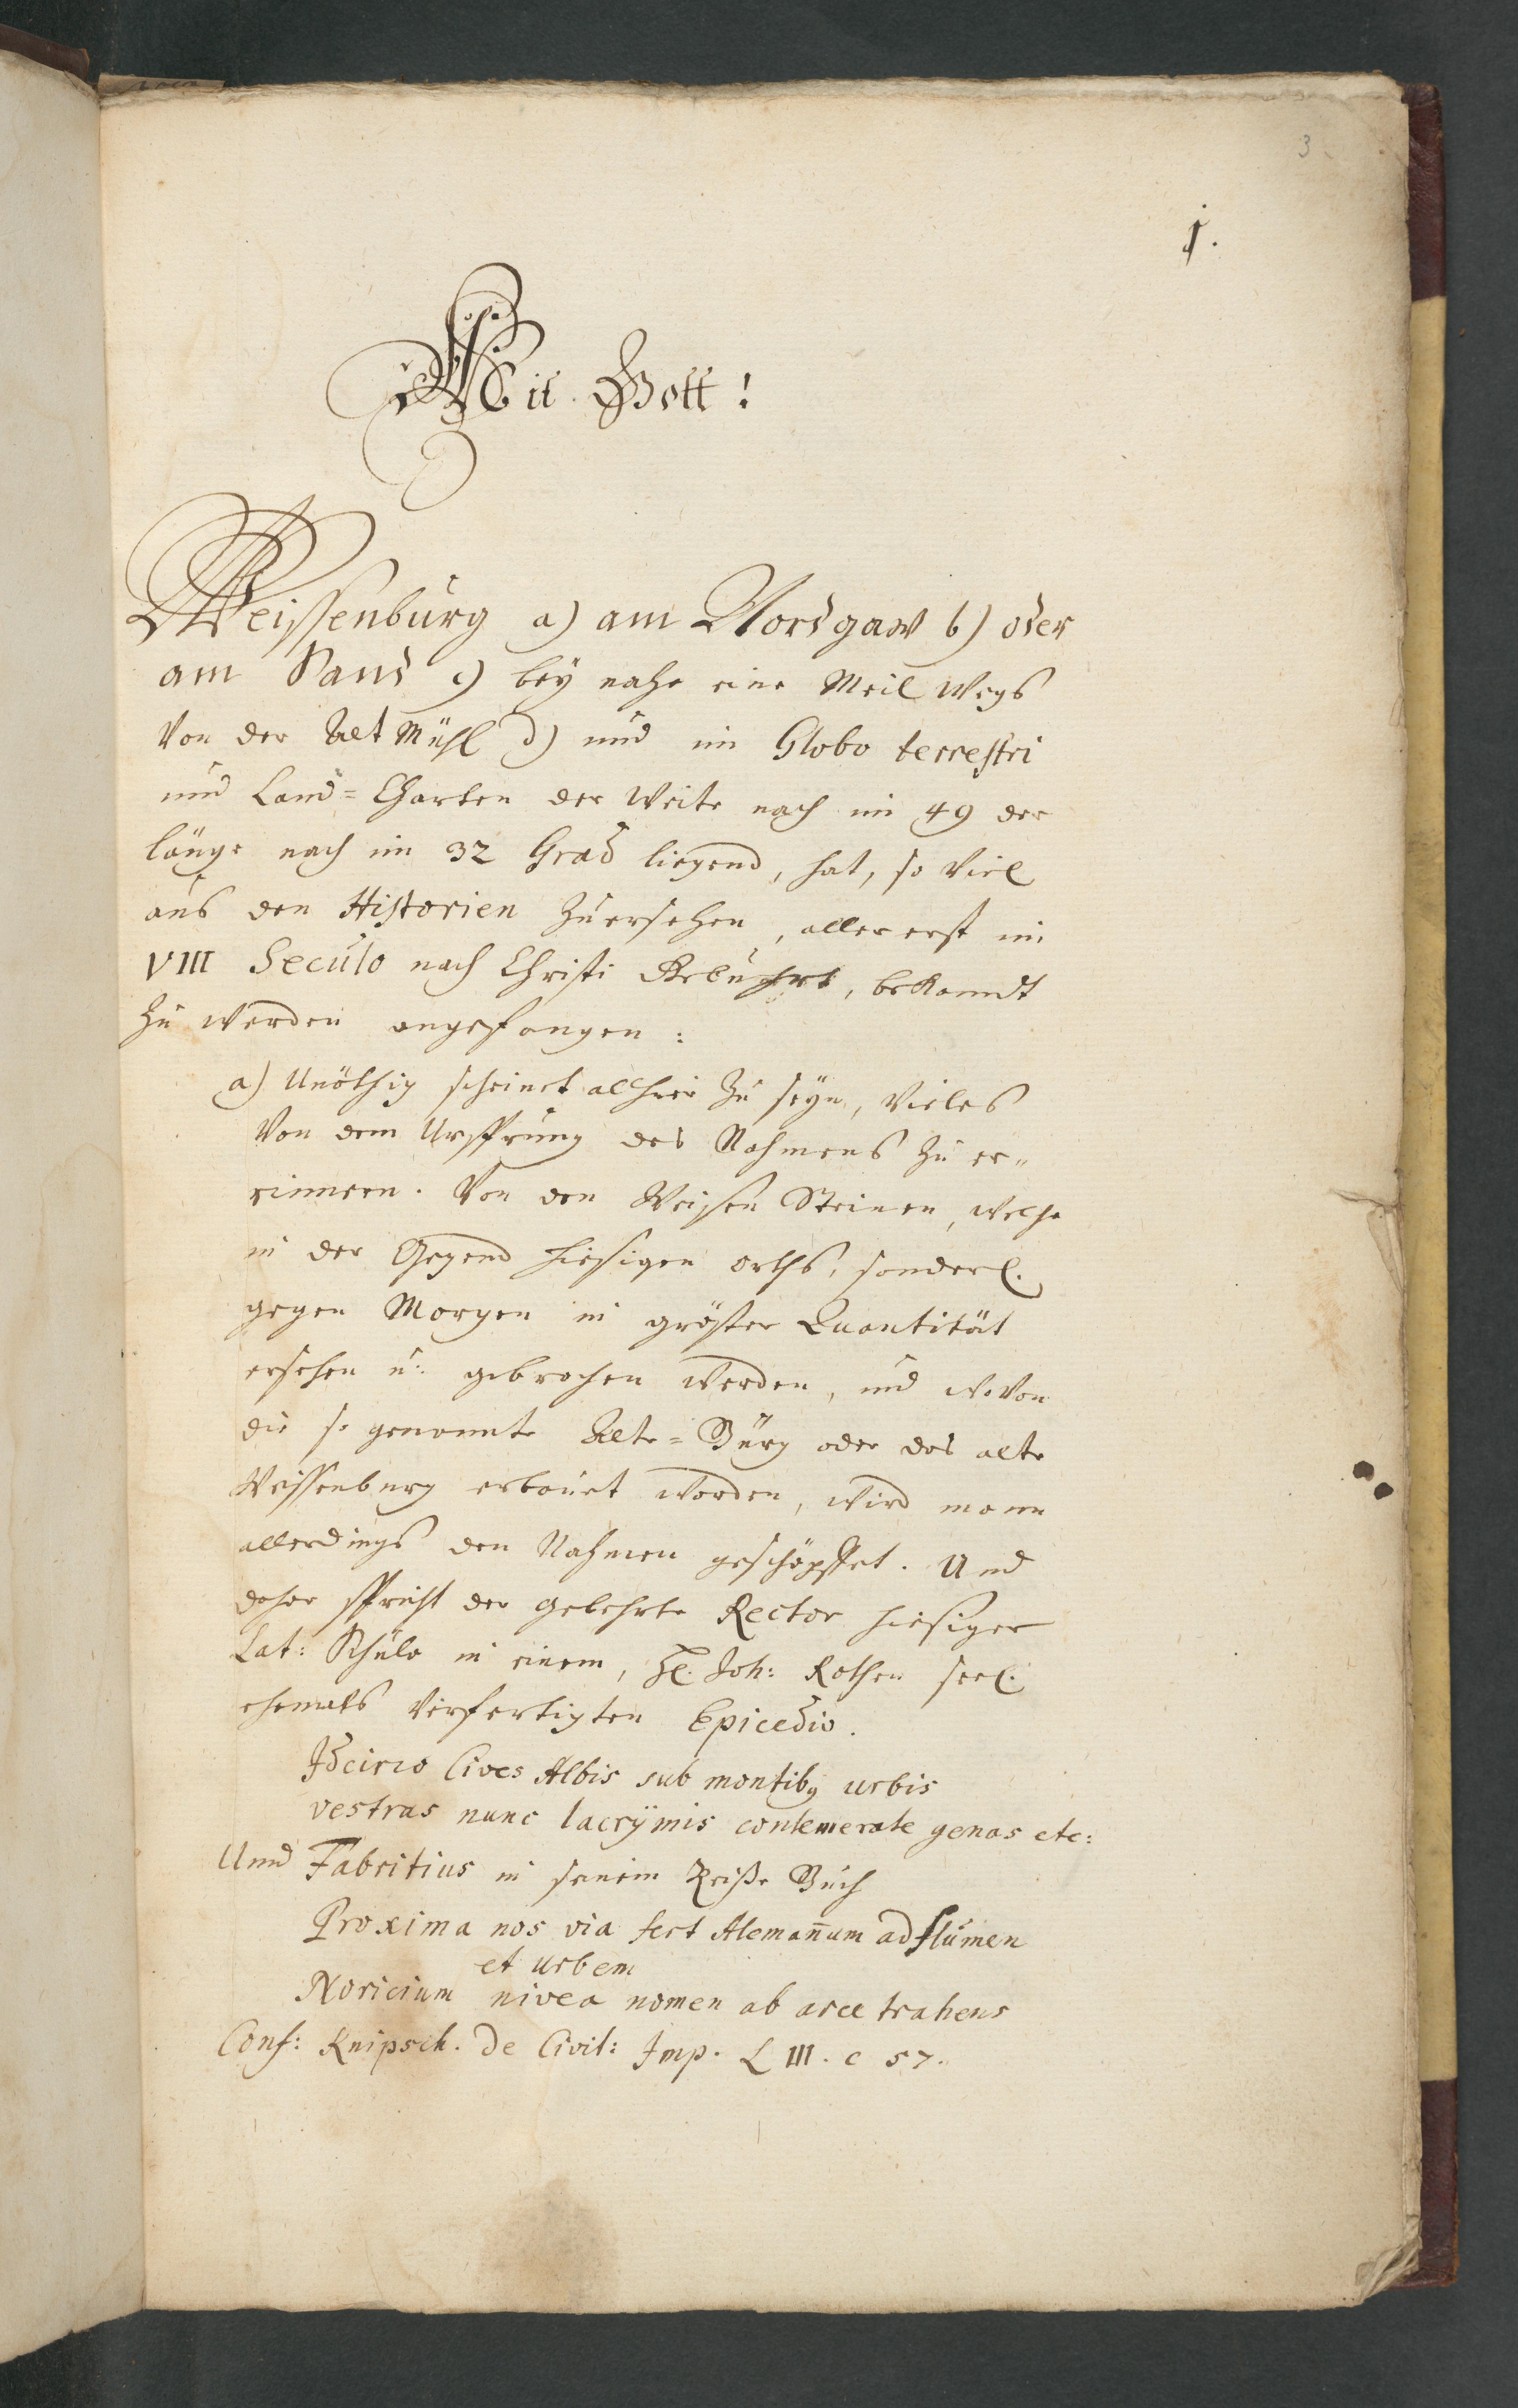 3
1.
Mit Gott!
Weissenburg a) am Nordgaw b) oder
am Sand c) bey nahe eine Meil Wegs
Von der Alt Mühl d) und im Globo terrestri
und Land=Charten der Weite nach im 49 der
länge nach im 32 Grad liegend, hat, so Viel
aus den Historien Zuersehen, aller erst im
VIII Seculo nach Christi Gebuhrt, bekandt
Zu werden angefangen:
a) Unöthig scheinet allhier Zu seyn, Vieles
Von dem Ursprung des Nahmens Zu er„
rinnern. Von den Weisen Steinen, welche
in der Gegend hiesigen orths, sonderl.
gegen Morgen in gröster Quantität
ersehen u: gebrochen werden, und woVon
die so genannte Alte=Bürg oder das alte
Weissenburg erbauet worden, wird mann
allerdings den Nahmen geschöpffet. Und
daher spricht der gelehrte Rector hiesiger
Lat: Schule in einem, H. Joh: Rothen seel.
ehemals Verfertigten Epicedio.
Idcirco Cives Albis sub montibq urbis
vestras nunc lacrÿmis contemerate genas etc:
Unnd Fabritius in seinem Reiße Buch
Proxima nos via fert Alemañum ad flumen
et urbem
Noricium nivea nomen ab arce trahens
Conf: Knipsch. De Civit: Imp. L III. c 57.